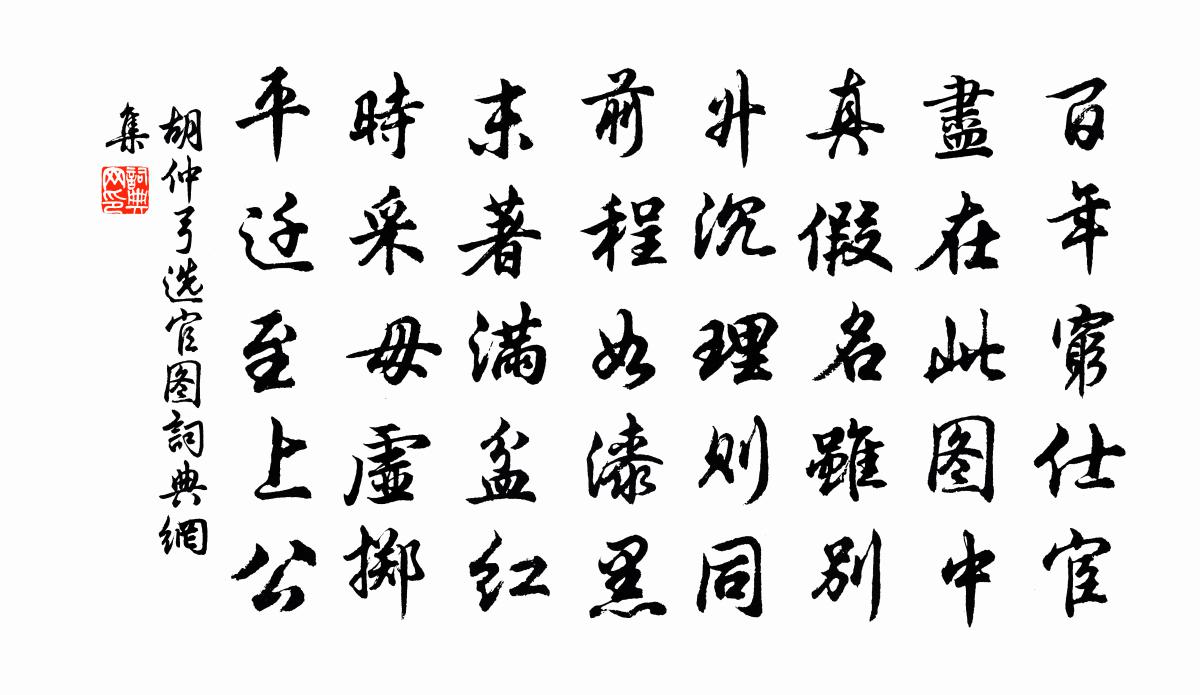 百年窮仕宦
盡在此图中
真假名雖别
升沉理则同
前程如漆黑
末著滿盆紅
時采毋虛擲
平迁至上公
胡仲弓选官图詞典網
集
詞典
网印